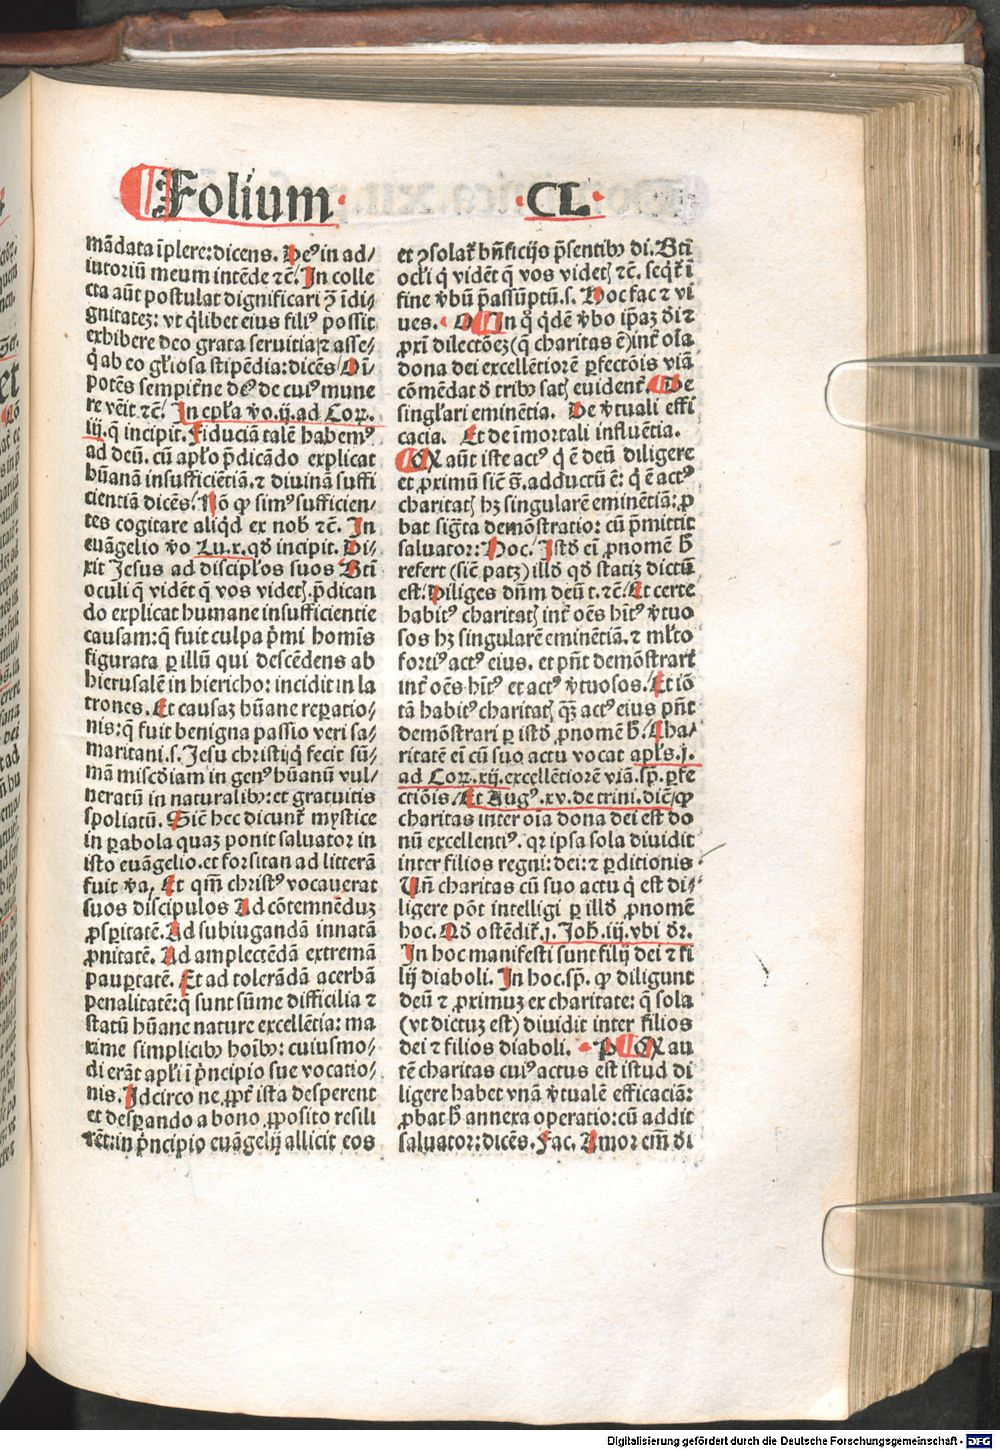 Folium · CL ·
mãdata īplere: dicens. Deꝰ in ad/
iutoriũ meum intẽde ⁊c̃. In colle
cta aũt postulat dignificari ꝫ īdi/
gnitateꝫ: vt q̃libet eius filiꝰ possit
exhibere deo grata servitia: ⁊ asse/
q̃ ab eo gl̃iosa stipẽdia: dicẽs. Oī/
potẽs sempit̃ne deꝰ de cuiꝰ mune
re vẽit ⁊c̃. In epl̃a v̾o .ij. ad Coꝝ.
iij. q̃ incipit. Fiduciã talẽ habemꝰ
ad deũ. cũ apl̃o p̃dicãdo explicat
hũanã insufficiẽtiã. ⁊ diuinã suffi
cientiã dicẽs. Nõ ꝙ simꝰ sufficien/
tes cogitare aliqd̃ ex nob̃ ⁊c̃. In
euãgelio v̾o Lu. x. qd̾ incipit. Di/
xit Jesus ad discipl̃os suos Bt̃i
oculi q̃ vidẽt q̃ vos videtꝭ. p̃dican
do explicat humane insufficientie
causam: q̃ fuit culpa p̃mi homĩs
figurata ꝑ illũ qui descẽdens ab
hierusalẽ in hiericho: incidit in la
trones. Et causaꝫ hũane reꝑatio/
nis: q̃ fuit benigna passio veri sa/
maritani .s. Jesu christi: q̃ fecit sũ/
mã miscd̾iam in genꝰ hũanũ vul/
neratũ in naturalibꝰ: et gratuitis
spoliatũ. Sic̃ hec dicunt̃ mystice
in ꝑabola quaꝫ ponit saluator in
isto euãgelio. et forsitan ad litterã
fuit v̾a. Et qm̃ christꝰ vocauerat
suos discipulos Ad cõtemnẽduꝫ
ꝓsꝑitatẽ. Ad subiugandã innatã
ꝓnitatẽ. Ad amplectẽdã extremã
pauꝑtatẽ. Et ad tolerãdã acerbã
penalitatẽ: q̃ sunt sũme difficilia ⁊
statũ hũane nature excellẽtia: ma
xime simplicibꝰ hoĩbꝰ: cuiusmo/
di erãt apl̃i ĩ p̃ncipio sue vocatio/
nis. Idcirco ne ꝓpt̃ ista desperent
et desꝑando a bono ꝓposito resili
rẽt: in p̃ncipio euãgelij allicit eos
et ꝯsolat̃ bñficijs p̃sentibꝰ di. Bt̃i
ocl̃i q̃ vidẽt q̃ vos videtꝭ ⁊c̃. seqt̃ ĩ
fine v̾bũ p̃assũptũ .s. Hoc fac ⁊ vi
ues. In q̃ qdẽ v̾bo ip̃aꝫ di ⁊
ꝓxĩ dilectõeꝫ (q̃ charitas ẽ) int̃ oĩa
dona dei excellẽtiorẽ ꝑfectõis viã
cõmẽdat d̾ tribꝰ satꝭ euident̃. De
singl̃ari eminẽtia. De v̾tuali effi
cacia. Et de ĩmortali influẽtia.
Ex aũt iste actꝰ q̃ ẽ deũ diligere
et ꝓximũ sic̃ s̃. adductũ ẽ: q̃ ẽ actꝰ
charitatꝭ hꝫ singularẽ eminẽtiã: ꝓ
bat sigt̃a demõstratio: cũ p̃mittit
saluator: Hoc. Istd̾ eĩ ꝓnomẽ h̃
refert (sic̃ patꝫ) illd̾ qd̾ statiꝫ dictũ
est. Diliges dñm deũ t. ⁊c̃. Et certe
habitꝰ charitatꝭ int̃ oẽs hĩtꝰ v̾tuo
sos hꝫ singularẽ eminẽtiã. ⁊ ml̃to
fortiꝰ actꝰ eius. et pñt demõstrari
int̃ oẽs hĩtꝰ et actꝰ v̾tuosos. Et iõ
tã habitꝰ charitatꝭ q̃ꝫ actꝰ eius pñt
demõstrari ꝑ istd̾ ꝓnomẽ h̃. Cha/
ritatẽ eĩ cũ suo actu vocat apl̃s .j.
ad Coꝝ. xij. excellẽtiorẽ viã. sp̃. ꝑfe
ctiõis. Et Augꝰ. xv. de trini. dic̃ ꝙ
charitas inter oĩa dona dei est do
nũ excellentiꝰ. qꝛ ipsa sola diuidit
inter filios regni: dei: ⁊ ꝑditionis.
Uñ charitas cũ suo actu q̃ est di/
ligere põt intelligi ꝑ illd̾ ꝓnomẽ
hoc. Qd̾ ostẽdit̃ .j. Joh̃. iij. vbi dr̃.
In hoc manifesti sunt filij dei ⁊ fi
lij diaboli. In hoc. sp̃. ꝙ diligunt
deũ ⁊ ꝓximuꝫ ex charitate: q̃ sola
(vt dictuꝫ est) diuidit inter filios
dei ⁊ filios diaboli. · P Ex au
tẽ charitas cuiꝰ actus est istud di
ligere habet vnã v̾tualẽ efficaciã:
ꝓbat h̃ annexa operatio: cũ addit
saluator: dicẽs. Fac. Amor em̃ di
Digitalisierung gefördert durch die Deutsche Forschungsgemeinschaft · DFG